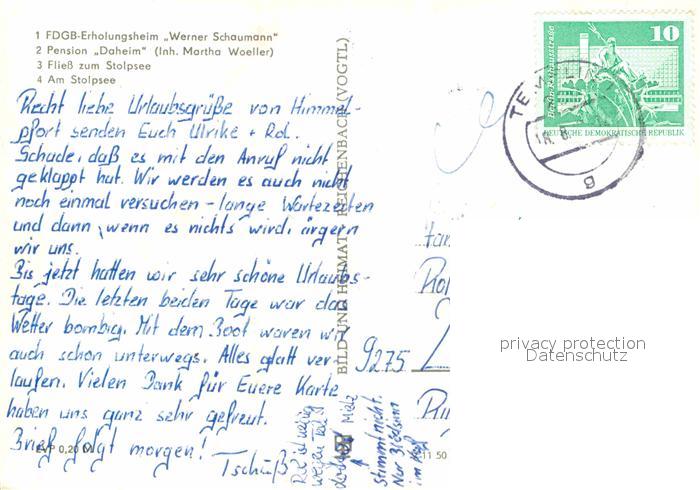 1 FDGB-Erholungsheim „Werner Schaumann"
2 Pension „Daheim" (Inh. Martha Woeller)
3 Fließ zum Stolpsee
4 Am Stolpsee
Recht liebe Urlaubsgrüße von Himmel-
pfort senden Euch Ulrike + Rol.
Schade, daß es mit den Anruf nicht
geklappt hat. Wir werden es auch nicht
noch einmal versuchen - lange Wartezeiten
und dann, wenn es nichts wird, ärgern
wir uns.
Bis jetzt hatten wir sehr schöne Urlaubs-
tage. Die letzten beiden Tage war das
Wetter bombig. Mit dem Boot waren wir
auch schon unterwegs. Alles glatt ver-
laufen. Vielen Dank für Euere Karte
haben uns ganz sehr gefreut.
Brief folgt morgen!
Tschüß
EVP 0,20 M
Rol ist
wegen
Mietz
stimmt nicht.
Nur Blödsinn
im Kopf
BILD UND HEIMAT REICHENBACH (VOGTL)
11 50
9275
10
Berlin, Rathausstraße
DEUTSCHE DEMOKRATISCHE REPUBLIK
TEMPLIN
g
privacy protection
Datenschutz